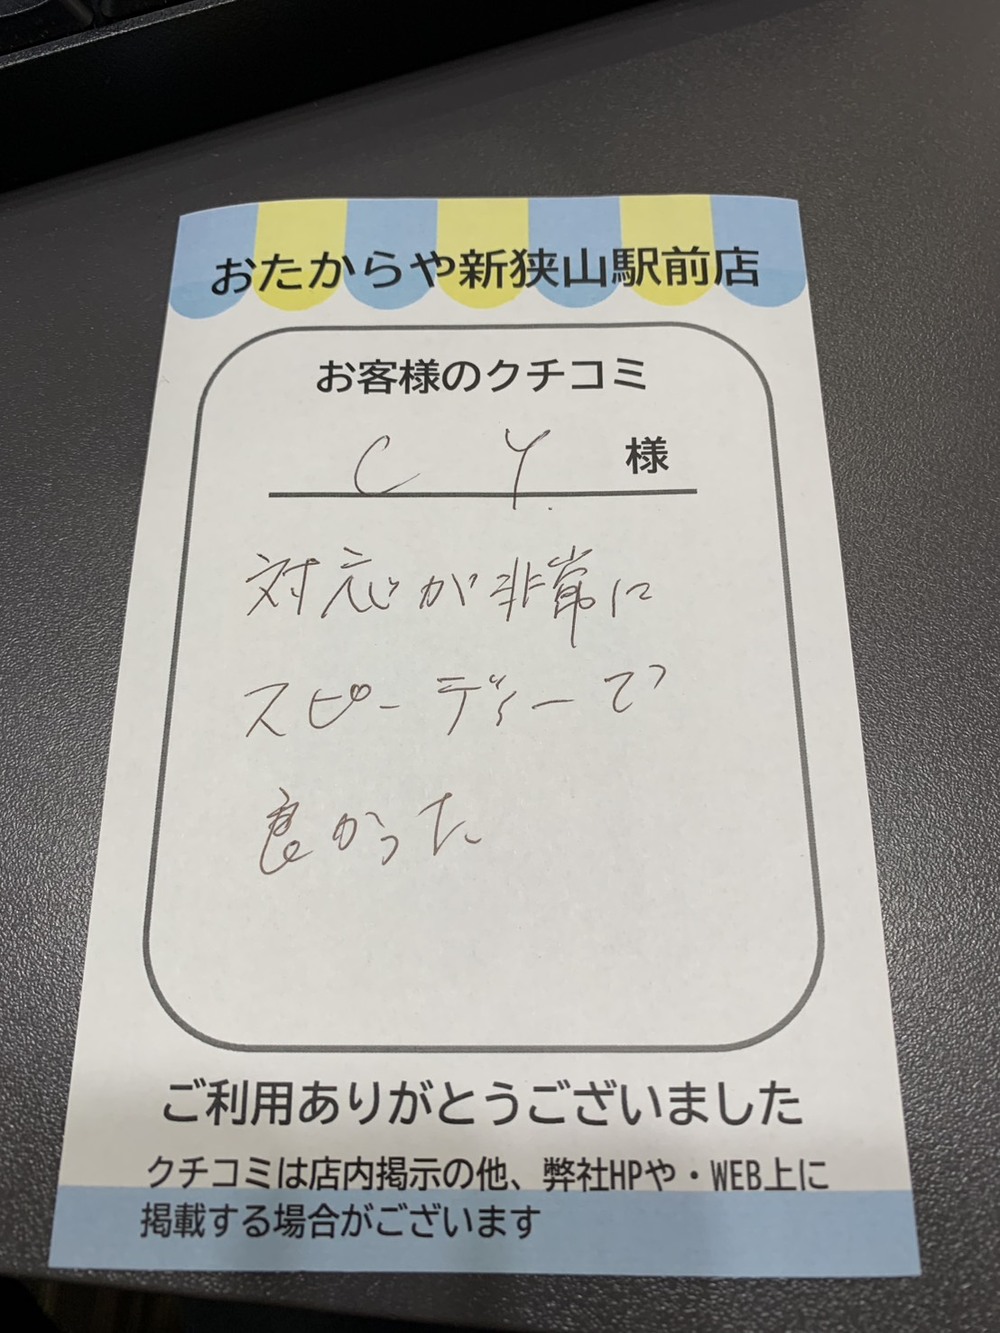 おたからや新狭山駅前店
お客様のクチコミ
C Y. 様
対応が非常に
スピーディーで
良かった
ご利用ありがとうございました
クチコミは店内掲示の他、弊社HPや・WEB上に
掲載する場合がございます